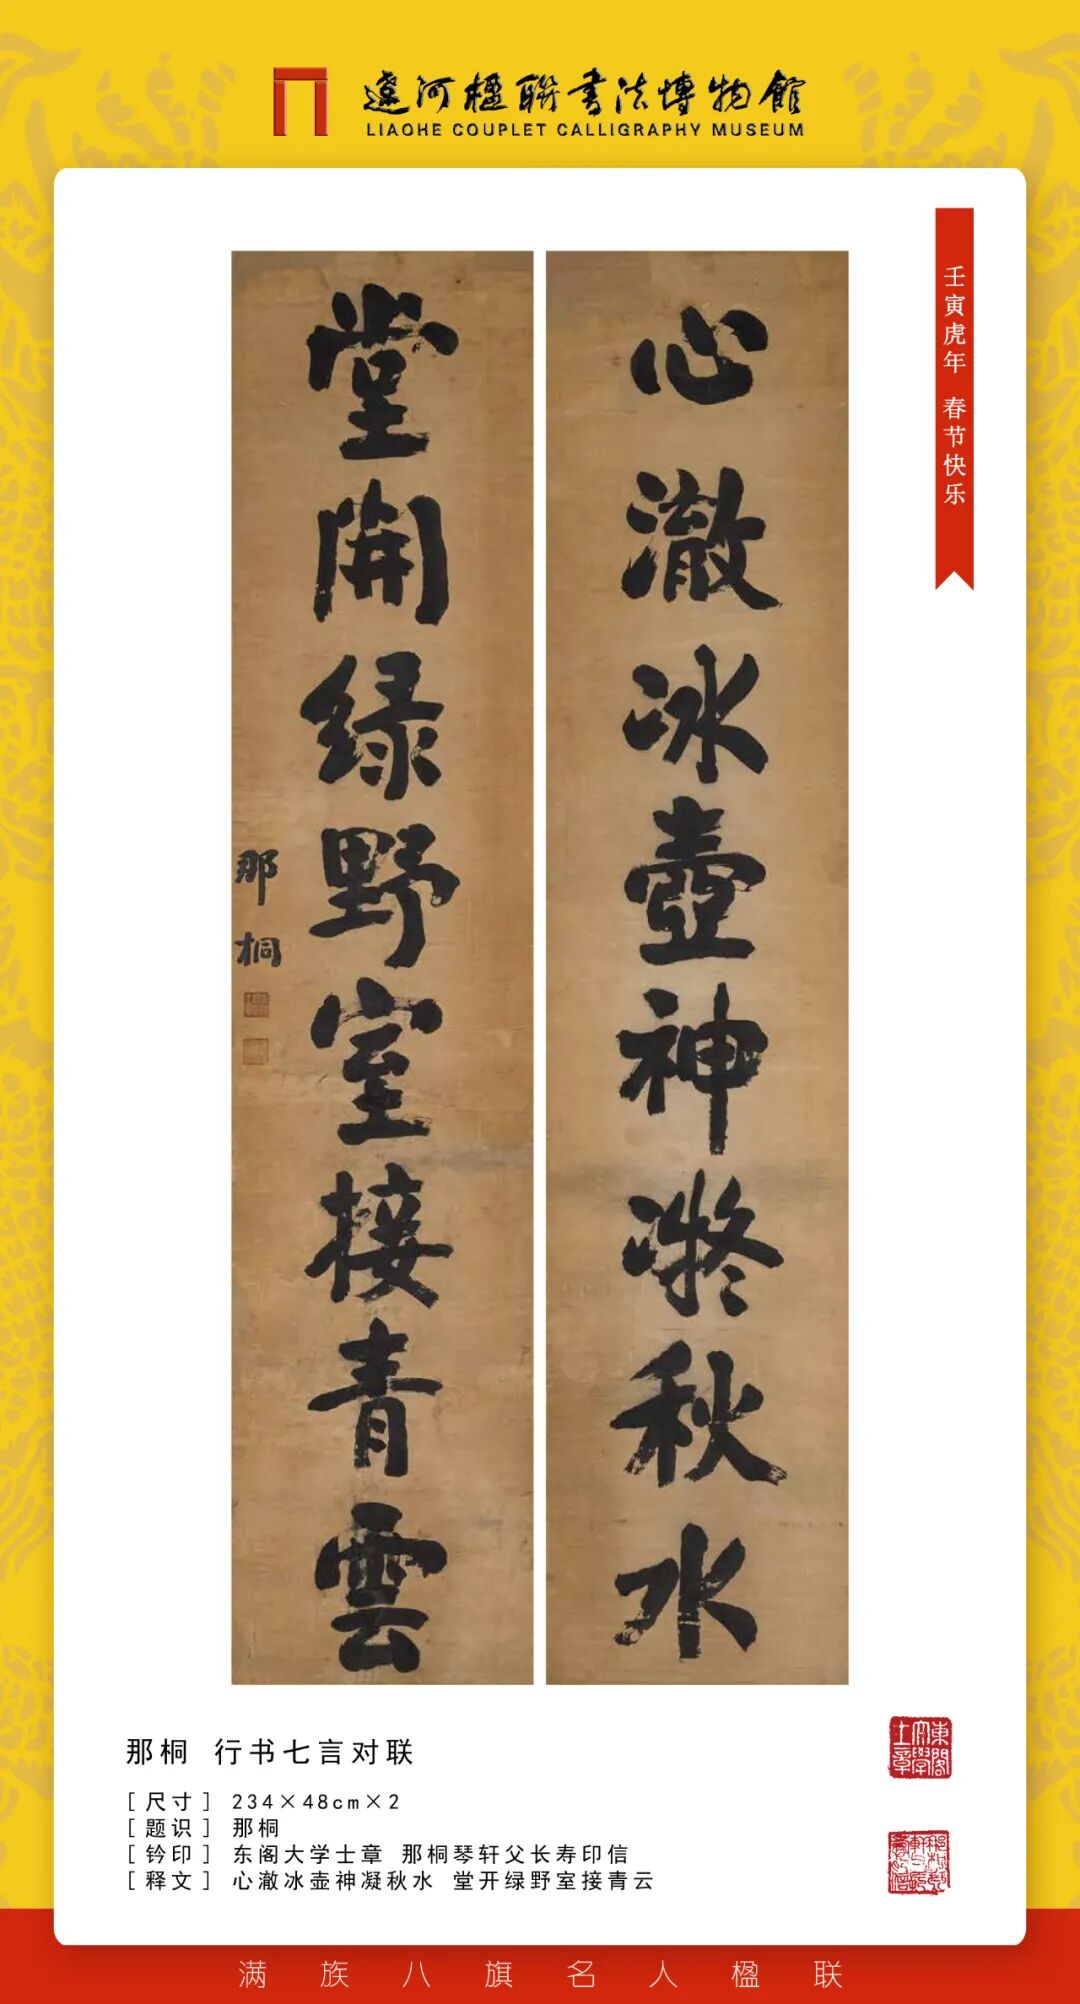 遼河楹聯書法博物館
LIAOHE COUPLET CALLIGRAPHY MUSEUM
壬寅虎年 春节快乐
心澈冰壺神凝秋水
堂開绿野室接青雲
那桐
那桐 行书七言对联
[尺寸] 234×48cm×2
[题识] 那桐
[钤印] 东阁大学士章 那桐琴轩父长寿印信
[释文] 心澈冰壶神凝秋水 堂开绿野室接青云
東閣大學士章
满族八旗名人楹联